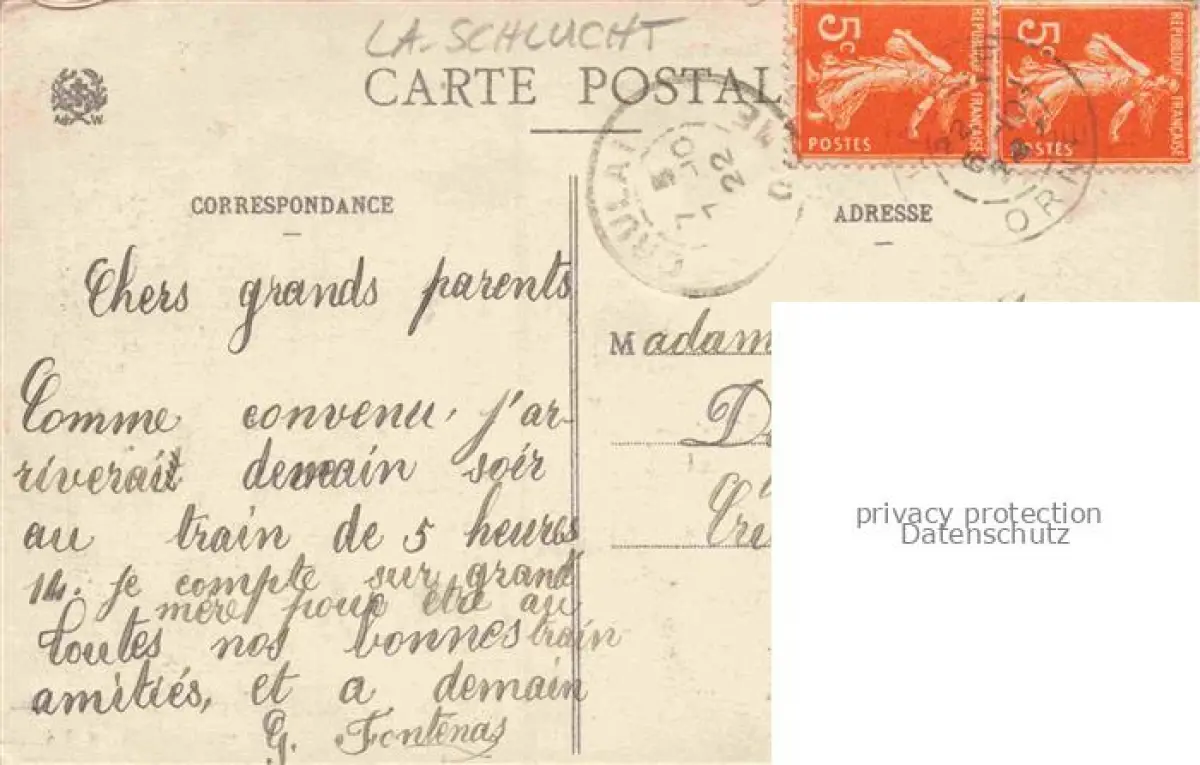 LA-SCHLUCHT
CARTE POSTAL
5c
POSTES
REPUBLIQUE FRANÇAISE
5c
POSTES
REPUBLIQUE FRANÇAISE
ORNE
22
CORRESPONDANCE
ADRESSE
Chers grands parents
Comme convenu, j'ar-
riverait demain soir
au train de 5 heures
14. je compte sur grand
mère pour être au
train
Toutes nos bonnes
amitiés, et a demain
G. Fontenas
Madam
privacy protection
Datenschutz